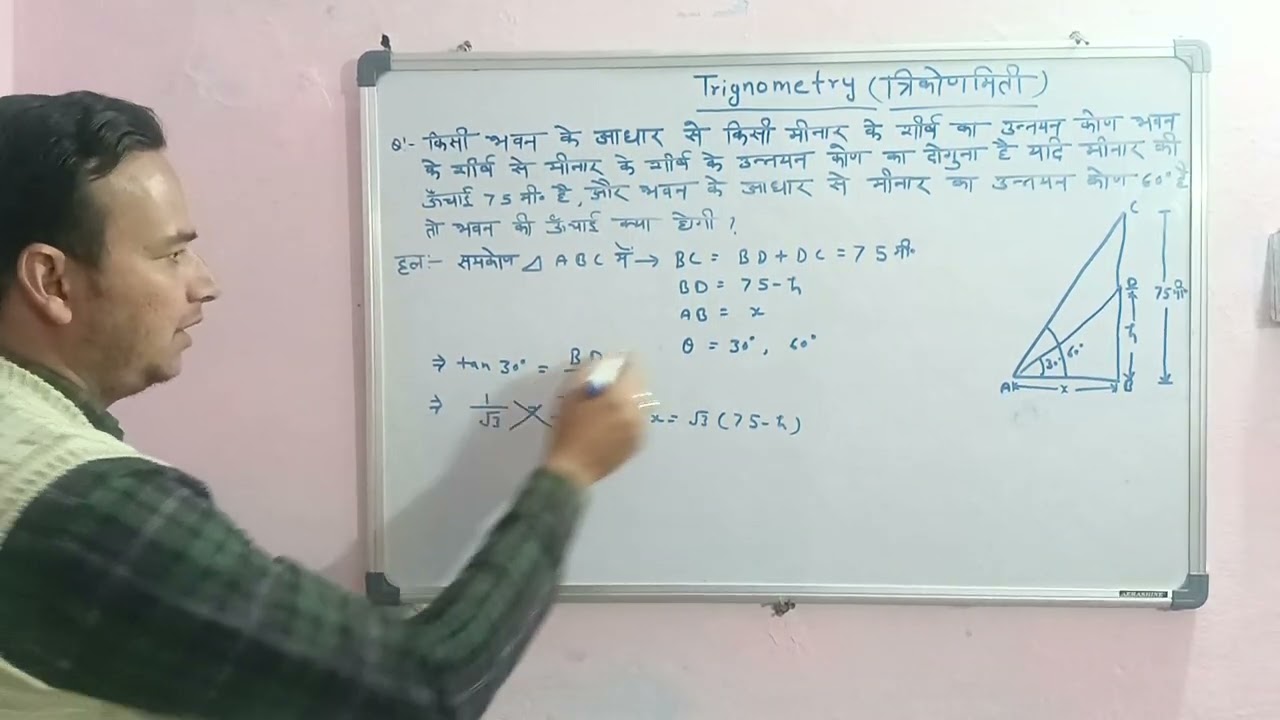 Trignometry (त्रिकोणमिती)
Q:- किसी भवन के आधार से किसी मीनार के शीर्ष का उन्नयन कोण भवन
के शीर्ष से मीनार के शीर्ष के उन्नयन कोण का दोगुना है यदि मीनार की
ऊँचाई 75 मी॰ है, और भवन के आधार से मीनार का उन्नयन कोण 60° है
तो भवन की ऊँचाई क्या होगी ?
हल:- समकोण ⊿ ABC में → BC = BD + DC = 75 मी॰
BD = 75-h
AB = x
θ = 30°, 60°
⇒ tan 30° = BD
⇒ 1/√3 x = √3 (75-h)
C
D
75 मी॰
h
30°
60°
A
x
B
AEMASHINE